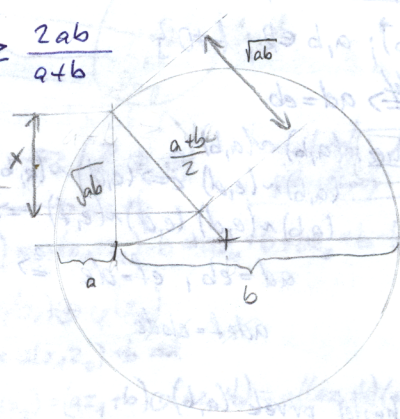 ≥ 2ab/(a+b)
√ab
x
(a+b)/2
√ab
a
b